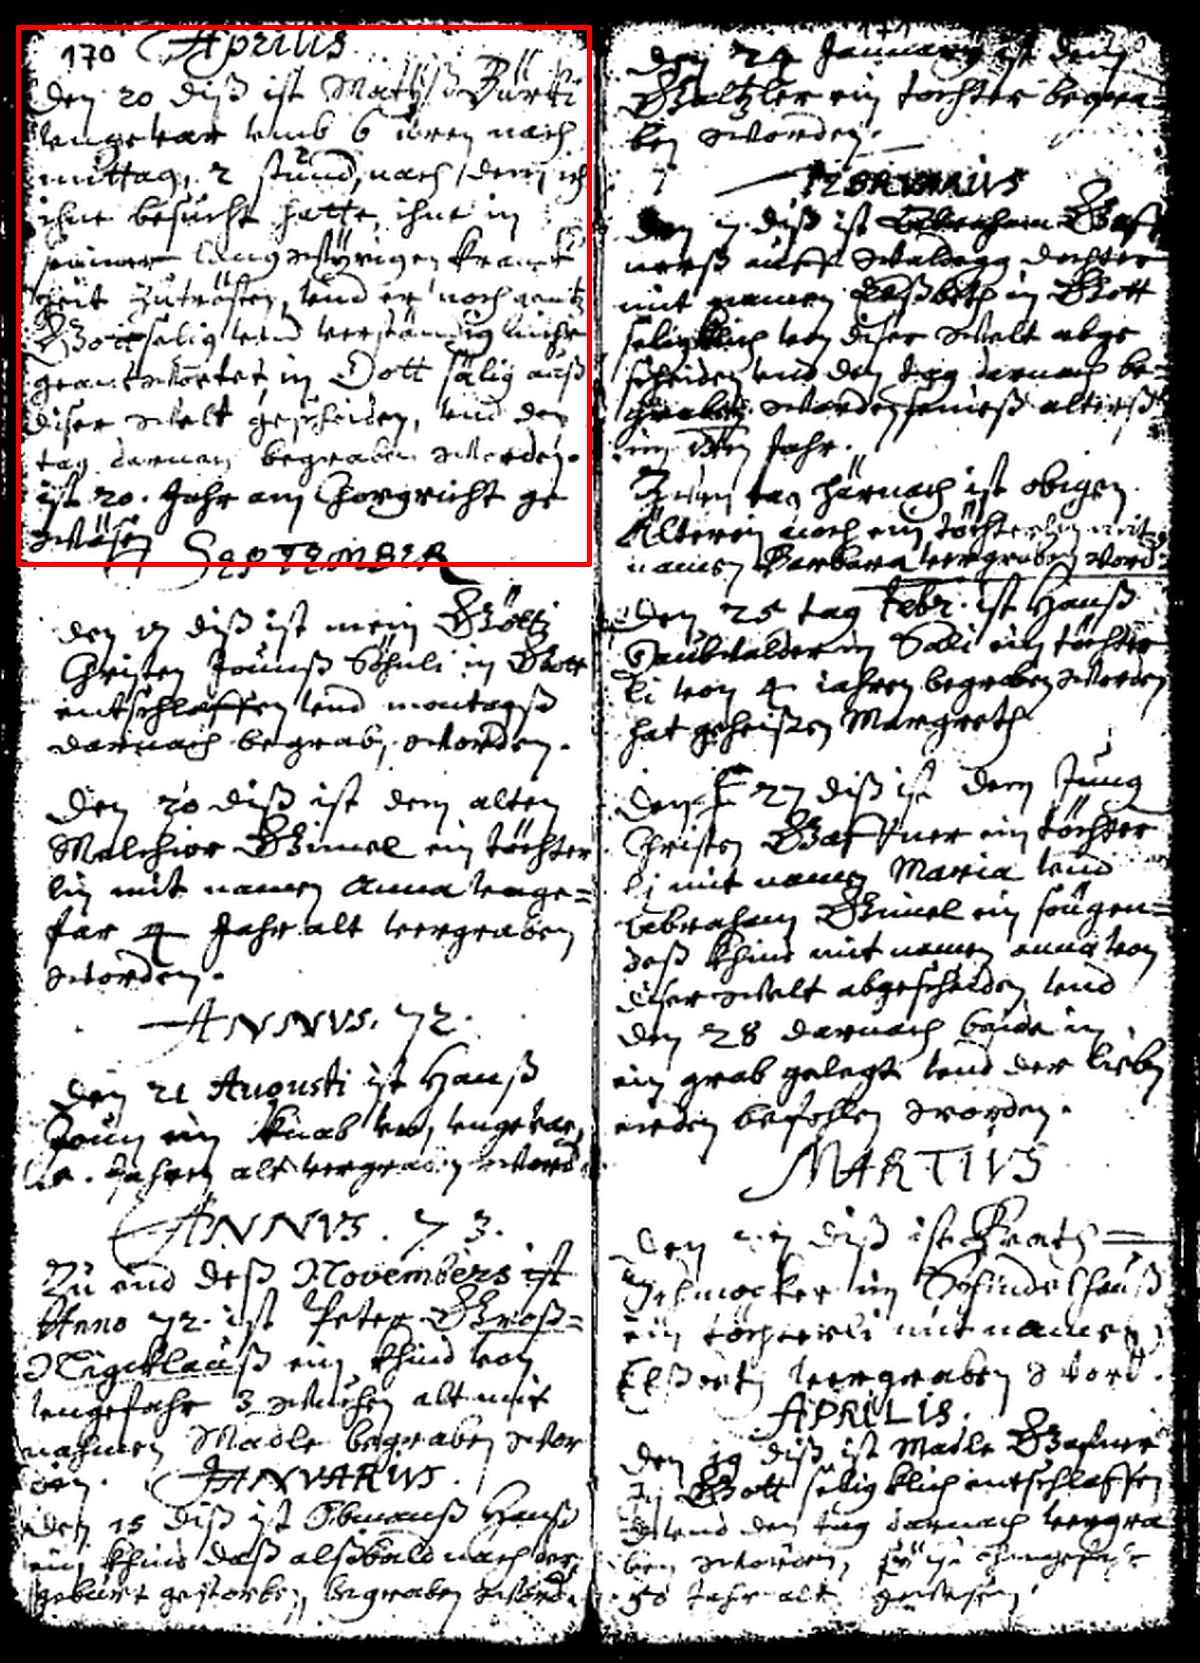 170 Aprilis
Den 20 diß ist Mathiß Bürki
ungevar umb 6 uren nach
mittag, 2 stund, nach dem ich
ihne besucht hatte, ihne in
seiner langwÿrigen kranck
heit zutrösten, und er noch gantz
Gottselig und verständiglichen
geantwortet, in Gott sälig auß
diser welt gescheiden, und den
tag darnan begraben worden.
ist 20. Jahr am Chorgricht ge
wäsen
SEPTEMBER
den 17 diß ist mein Götti
Christen Schüli in Gott
entschlaffen und montagß
darnach begrab, worden.
Den 20 diß ist dem alten
Melchior Gimel ein töchter
lin mit namen Anna unge=
far 4 Jahr alt vergraben
worden.
ANNVS. 72.
Den 21 Augusti ist Hanß
ein knab von, ungevar,
Jahren alt vergraben word.
ANNVS. 73.
Zu end deß Novembers ist
Anno 72. ist Peter Groß=
Nigklauß ein khind von
ungefahr 3 wuchen alt mit
nahmen Madle begraben wor
den. IANVARIVS.
Den 15 diß ist Obmanß Hanß
ein khind daß alßbald nach der
geburt gestorben, begraben word.
Den 24 January ist dem
Baltzler ein tochter begra=
ben worden.
FEBRVARIVS
Den 7. diß ist Abraham Gaff
nerß auff Waldegg dochter
mit namen Elßbeth in Gott
seligklich von diser welt abge
scheiden und den tag darnach be=
graben worden seineß alterß
im Jahr.
Zwen tag härnach ist obigen
Älteren noch ein töchterlin mit
namen Barbara vergraben word.
Den 25 tag Febr. ist Hanß
ein töchter
li von 4 iahren begraben worden
hat geheißen Margreth
Den 27 diß ist dem Jung
Christen Gaffner ein töchter
li mit namen Maria und
Abraham Gimel ein söugen=
deß khind mit namen anna von
diser welt abgescheiden, und
den 28 darnach beide in
ein grab gelegt und der lieben
erden befohlen worden.
MARTIVS
Den diß ist
im Schindelhauß
ein töchterli mit namen
Elßbeth vergraben word.
APRILIS.
Den 19 diß ist Madle Gafner
in Gott seligklich entschlaffen
und den tag darnach vergra
ben worden, ist ohngefahr
50 Jahr alt gewesen.